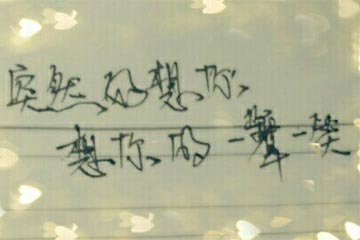 突然、好想你、
想你、的一颦一笑